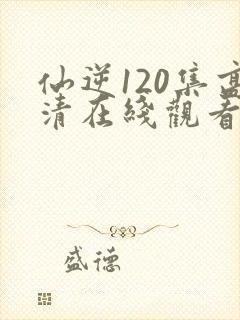 仙逆120集高
清在綫觀看
盛德